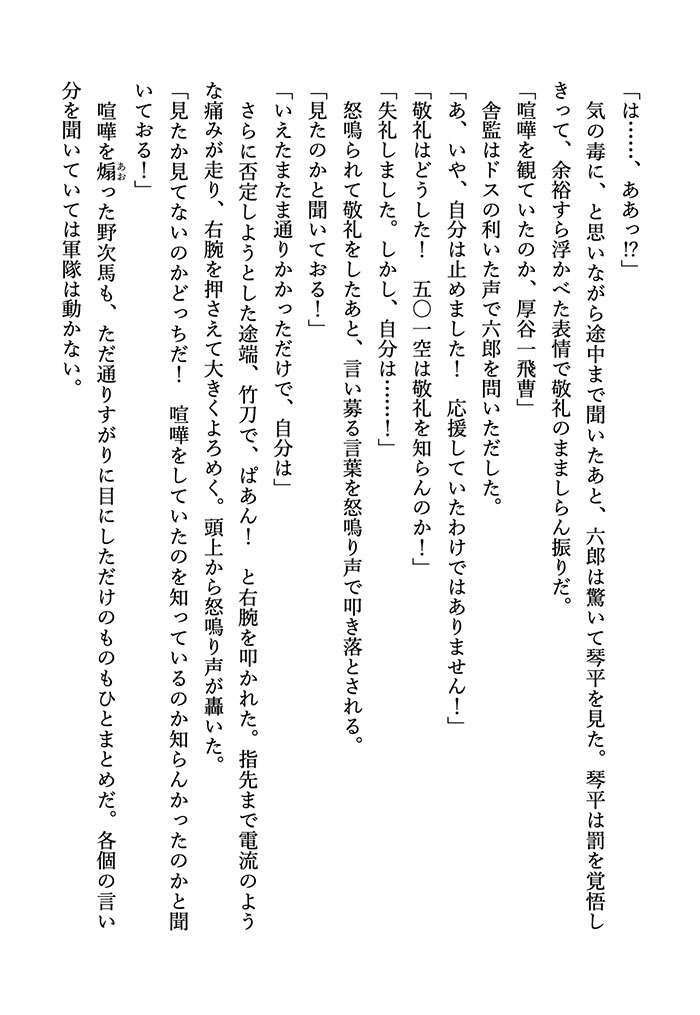 「は……、ああっ!?」
　気の毒に、と思いながら途中まで聞いたあと、六郎は驚いて琴平を見た。琴平は罰を覚悟し
きって、余裕すら浮かべた表情で敬礼のまましらん振りだ。
「喧嘩を観ていたのか、厚谷一飛曹」
　舎監はドスの利いた声で六郎を問いただした。
「あ、いや、自分は止めました！　応援していたわけではありません！」
「敬礼はどうした！　五〇一空は敬礼を知らんのか！」
「失礼しました。しかし、自分は……！」
　怒鳴られて敬礼をしたあと、言い募る言葉を怒鳴り声で叩き落とされる。
「見たのかと聞いておる！」
「いえたまたま通りかかっただけで、自分は」
　さらに否定しようとした途端、竹刀で、ぱあん！　と右腕を叩かれた。指先まで電流のよう
な痛みが走り、右腕を押さえて大きくよろめく。頭上から怒鳴り声が轟いた。
「見たか見てないのかどっちだ！　喧嘩をしていたのを知っているのか知らんかったのかと聞
いておる！」
　喧嘩を煽（あお）った野次馬も、ただ通りすがりに目にしただけのものもひとまとめだ。各個の言い
分を聞いていては軍隊は動かない。